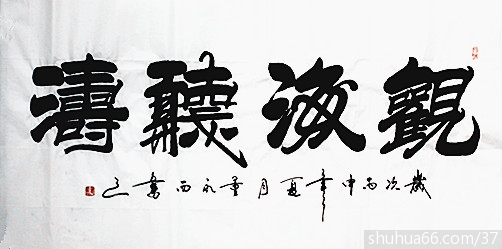 觀海聽濤
歲次丙申年夏月董永西書
shuhua66.com/37